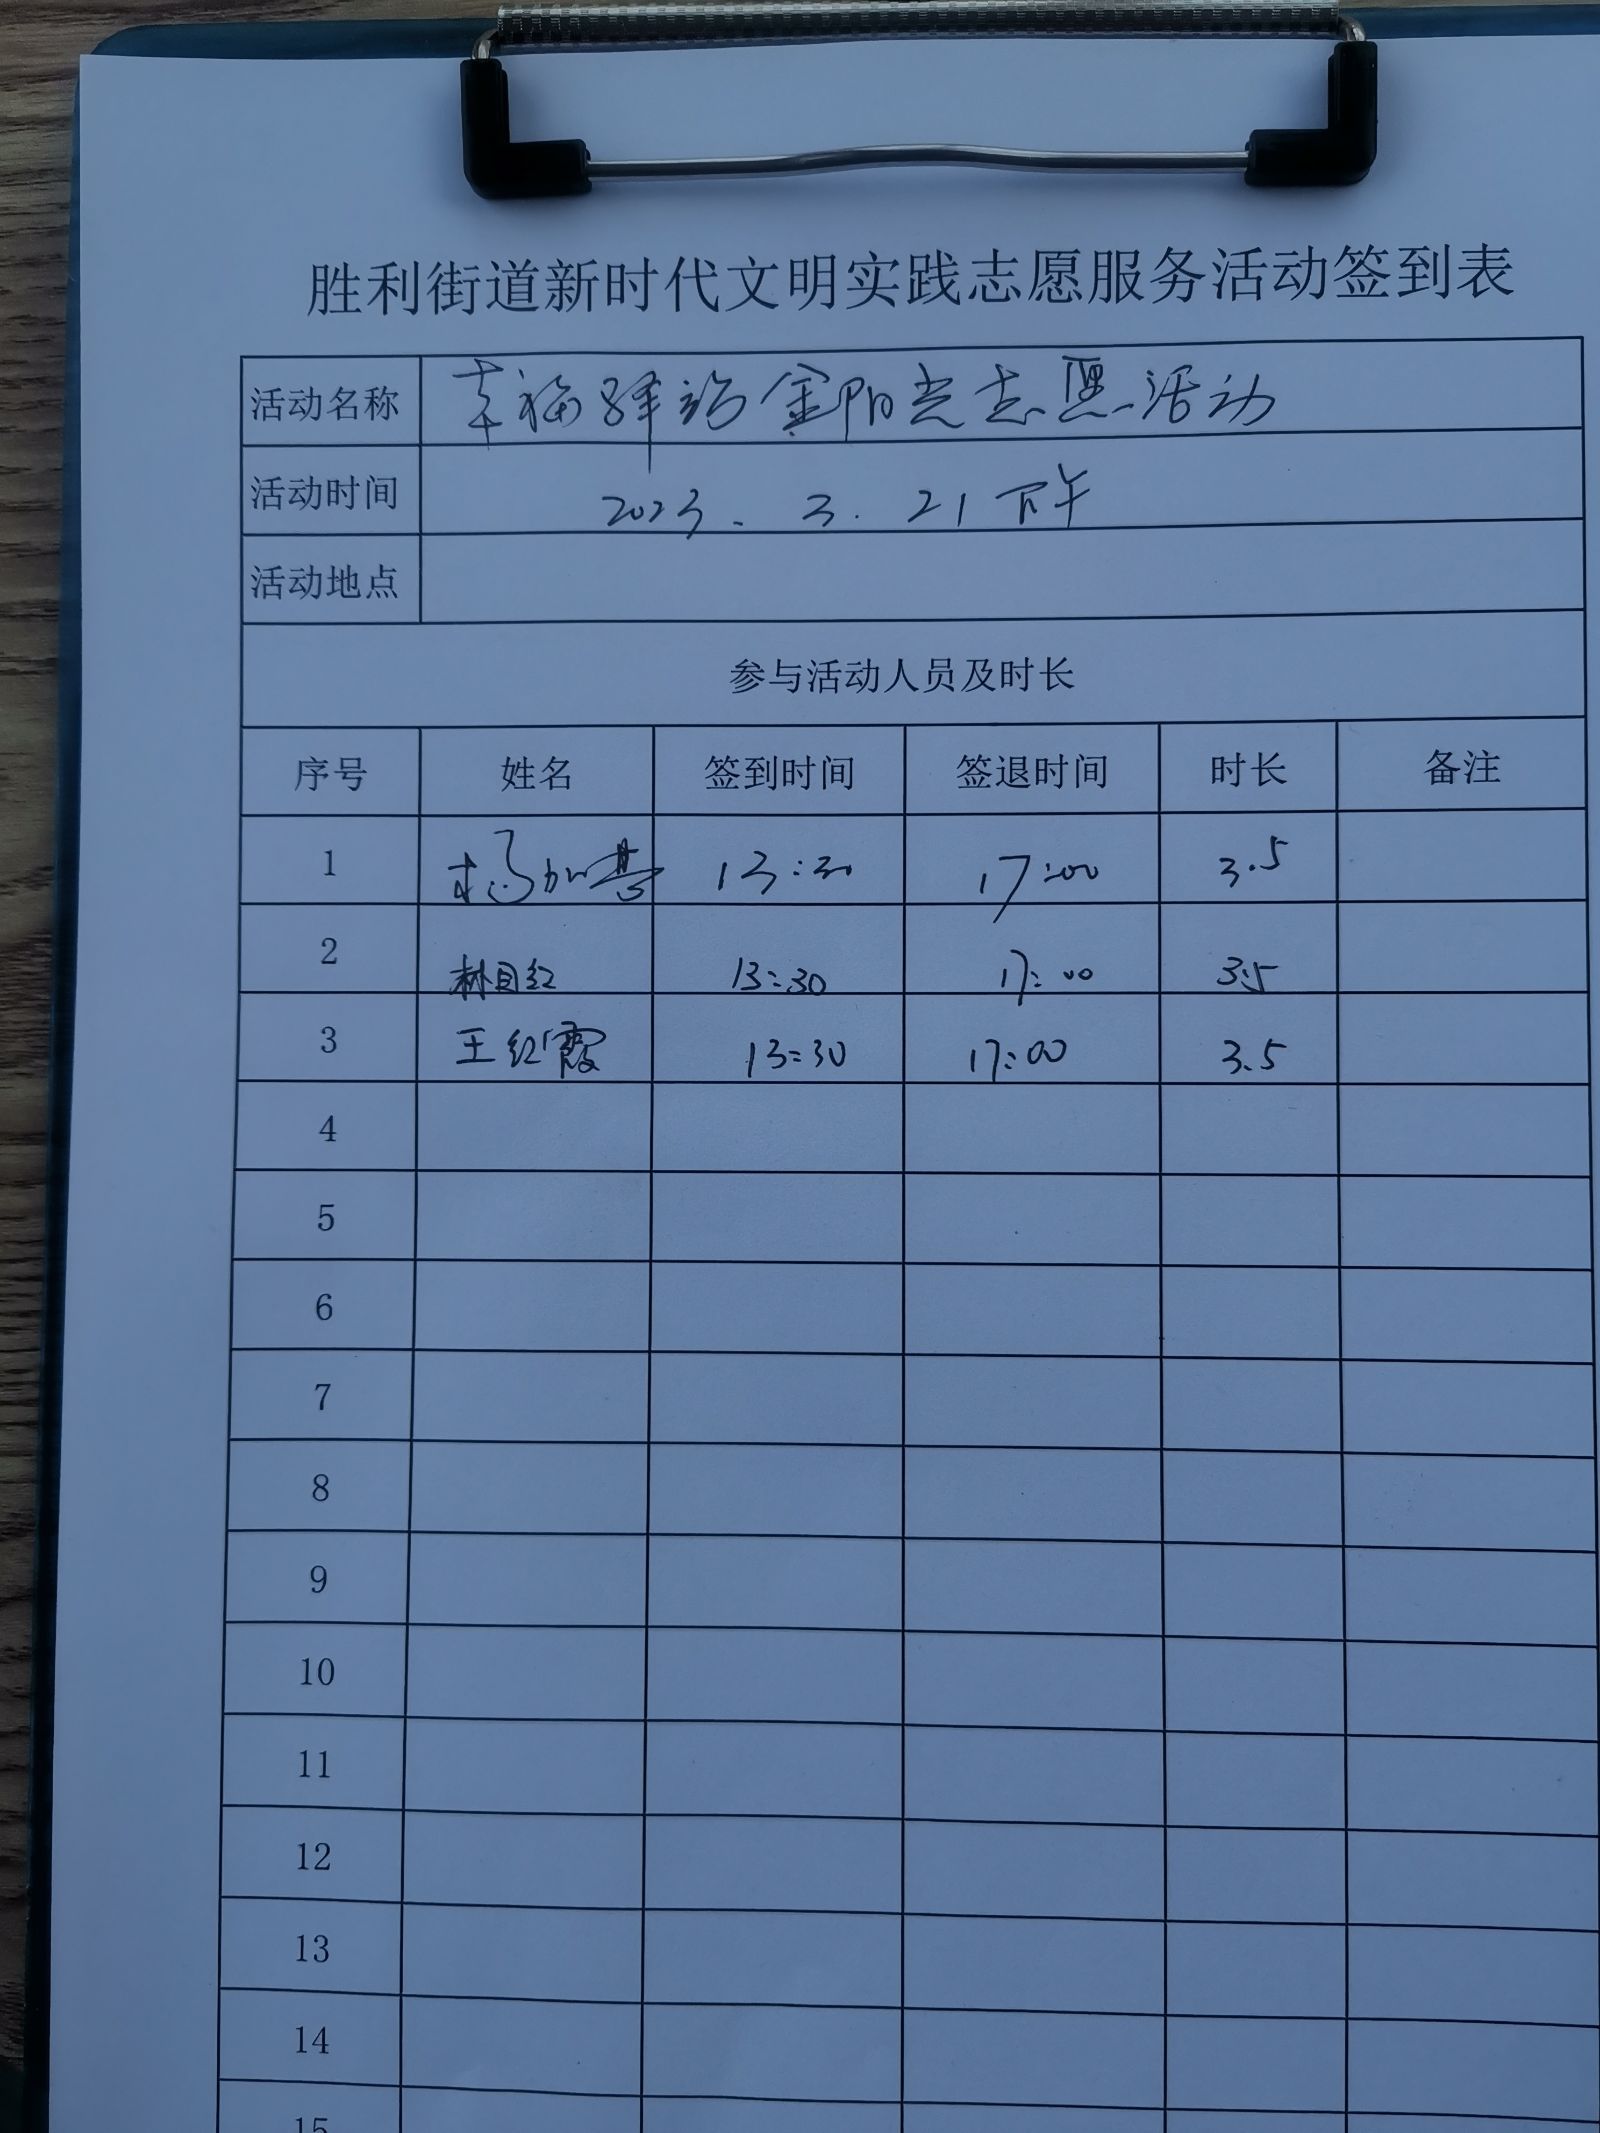 胜利街道新时代文明实践志愿服务活动签到表
活动名称 幸福驿站金阳光志愿活动
活动时间 2023.3.21下午
活动地点
参与活动人员及时长
序号 姓名 签到时间 签退时间 时长 备注
1 13:30 17:00 3.5
2 林目红 13:30 17:00 3.5
3 王红霞 13:30 17:00 3.5
4
5
6
7
8
9
10
11
12
13
14
15